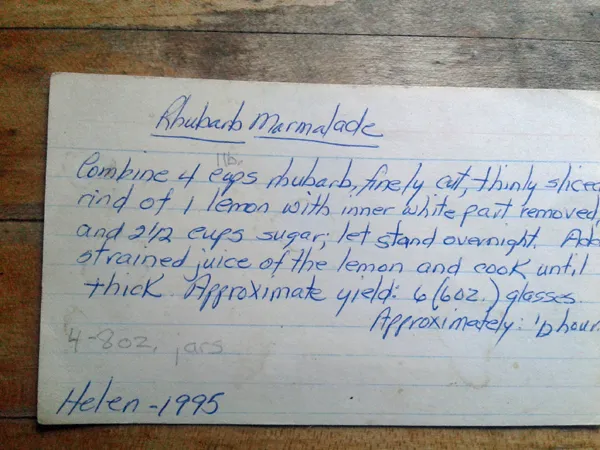 Rhubarb Marmalade
1 lb.
Combine 4 cups rhubarb, finely cut, thinly sliced
rind of 1 lemon with inner white part removed,
and 2 1/2 cups sugar; let stand overnight. Add
strained juice of the lemon and cook until
thick. Approximate yield: 6 (6oz.) glasses.
Approximately: hour
4-8oz. jars
Helen-1995